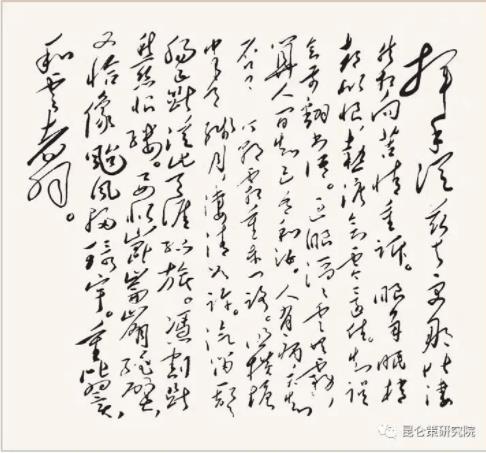 挥手从兹去更那堪凄
然相向苦情重诉。眼角眉梢
都似恨,热泪欲零还住。知误
会前翻书语。过眼滔滔云共雾,
算人间知己吾和汝。人有病天知
否?今朝霜重东门路。照横塘
半天残月,凄清如许。汽笛一声
肠已断,从此天涯孤旅。凭割断
愁丝恨缕。要似崑崙崩绝壁,
又恰像颱风扫环宇。重比翼,
和云翥。
昆仑策研究院